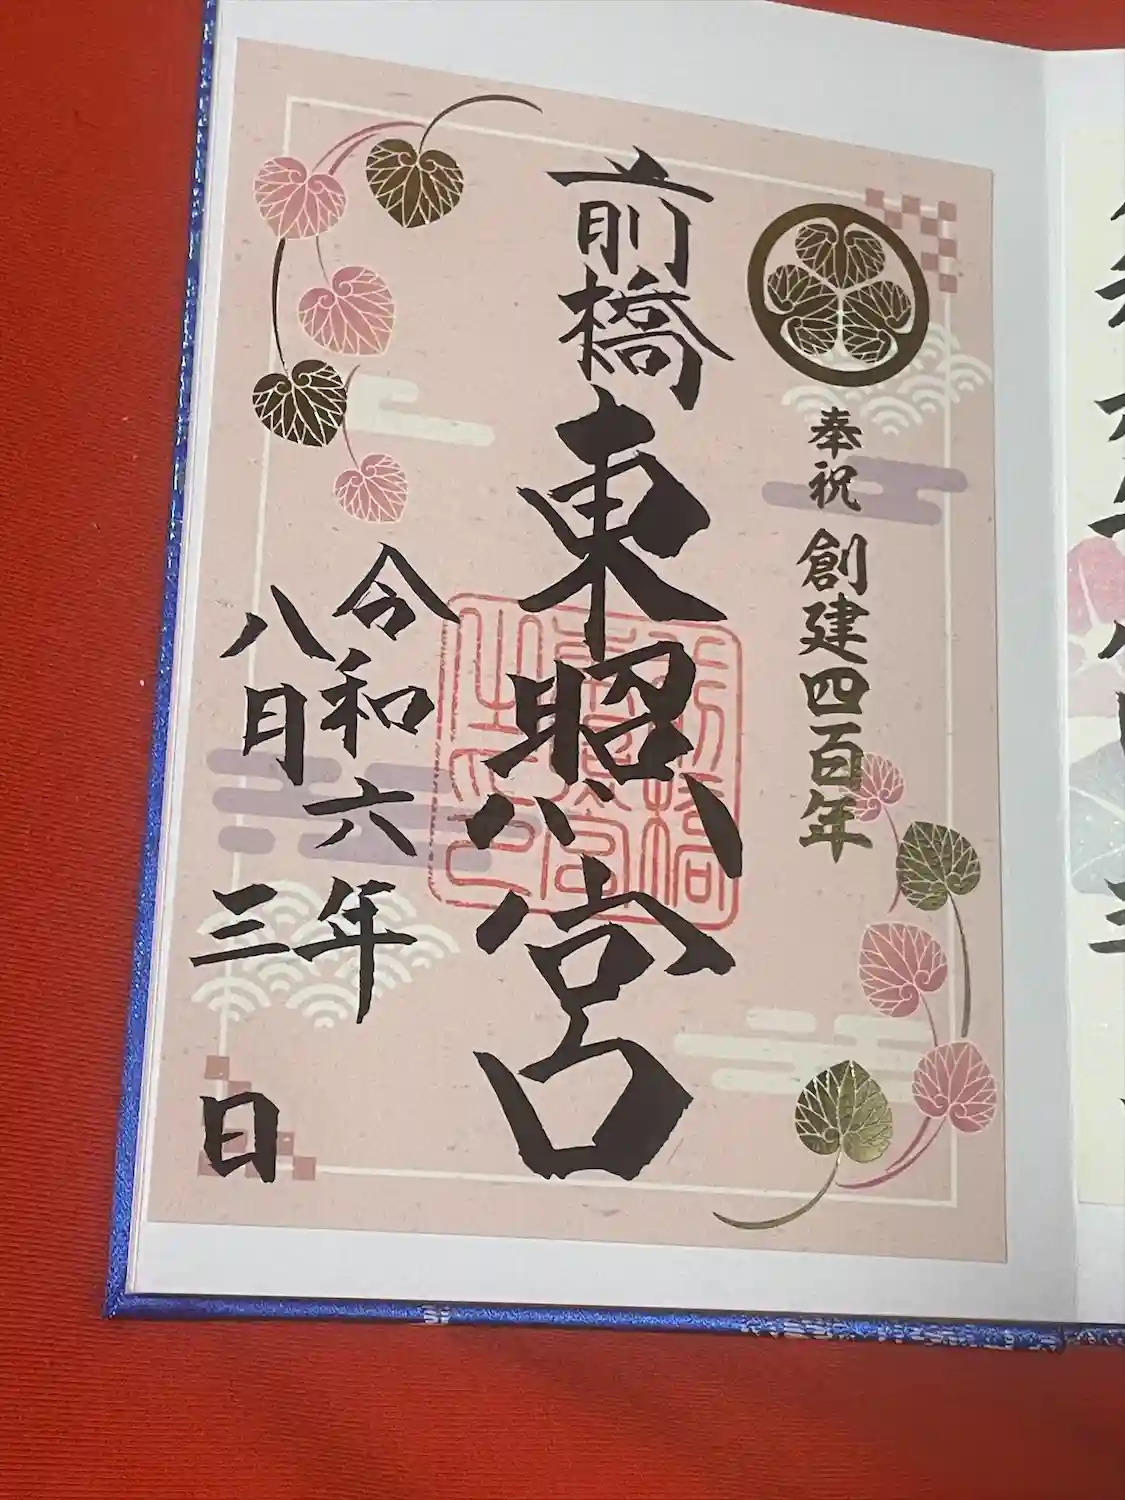 奉祝 創建四百年
前橋東照宮
令和六年
八月三日